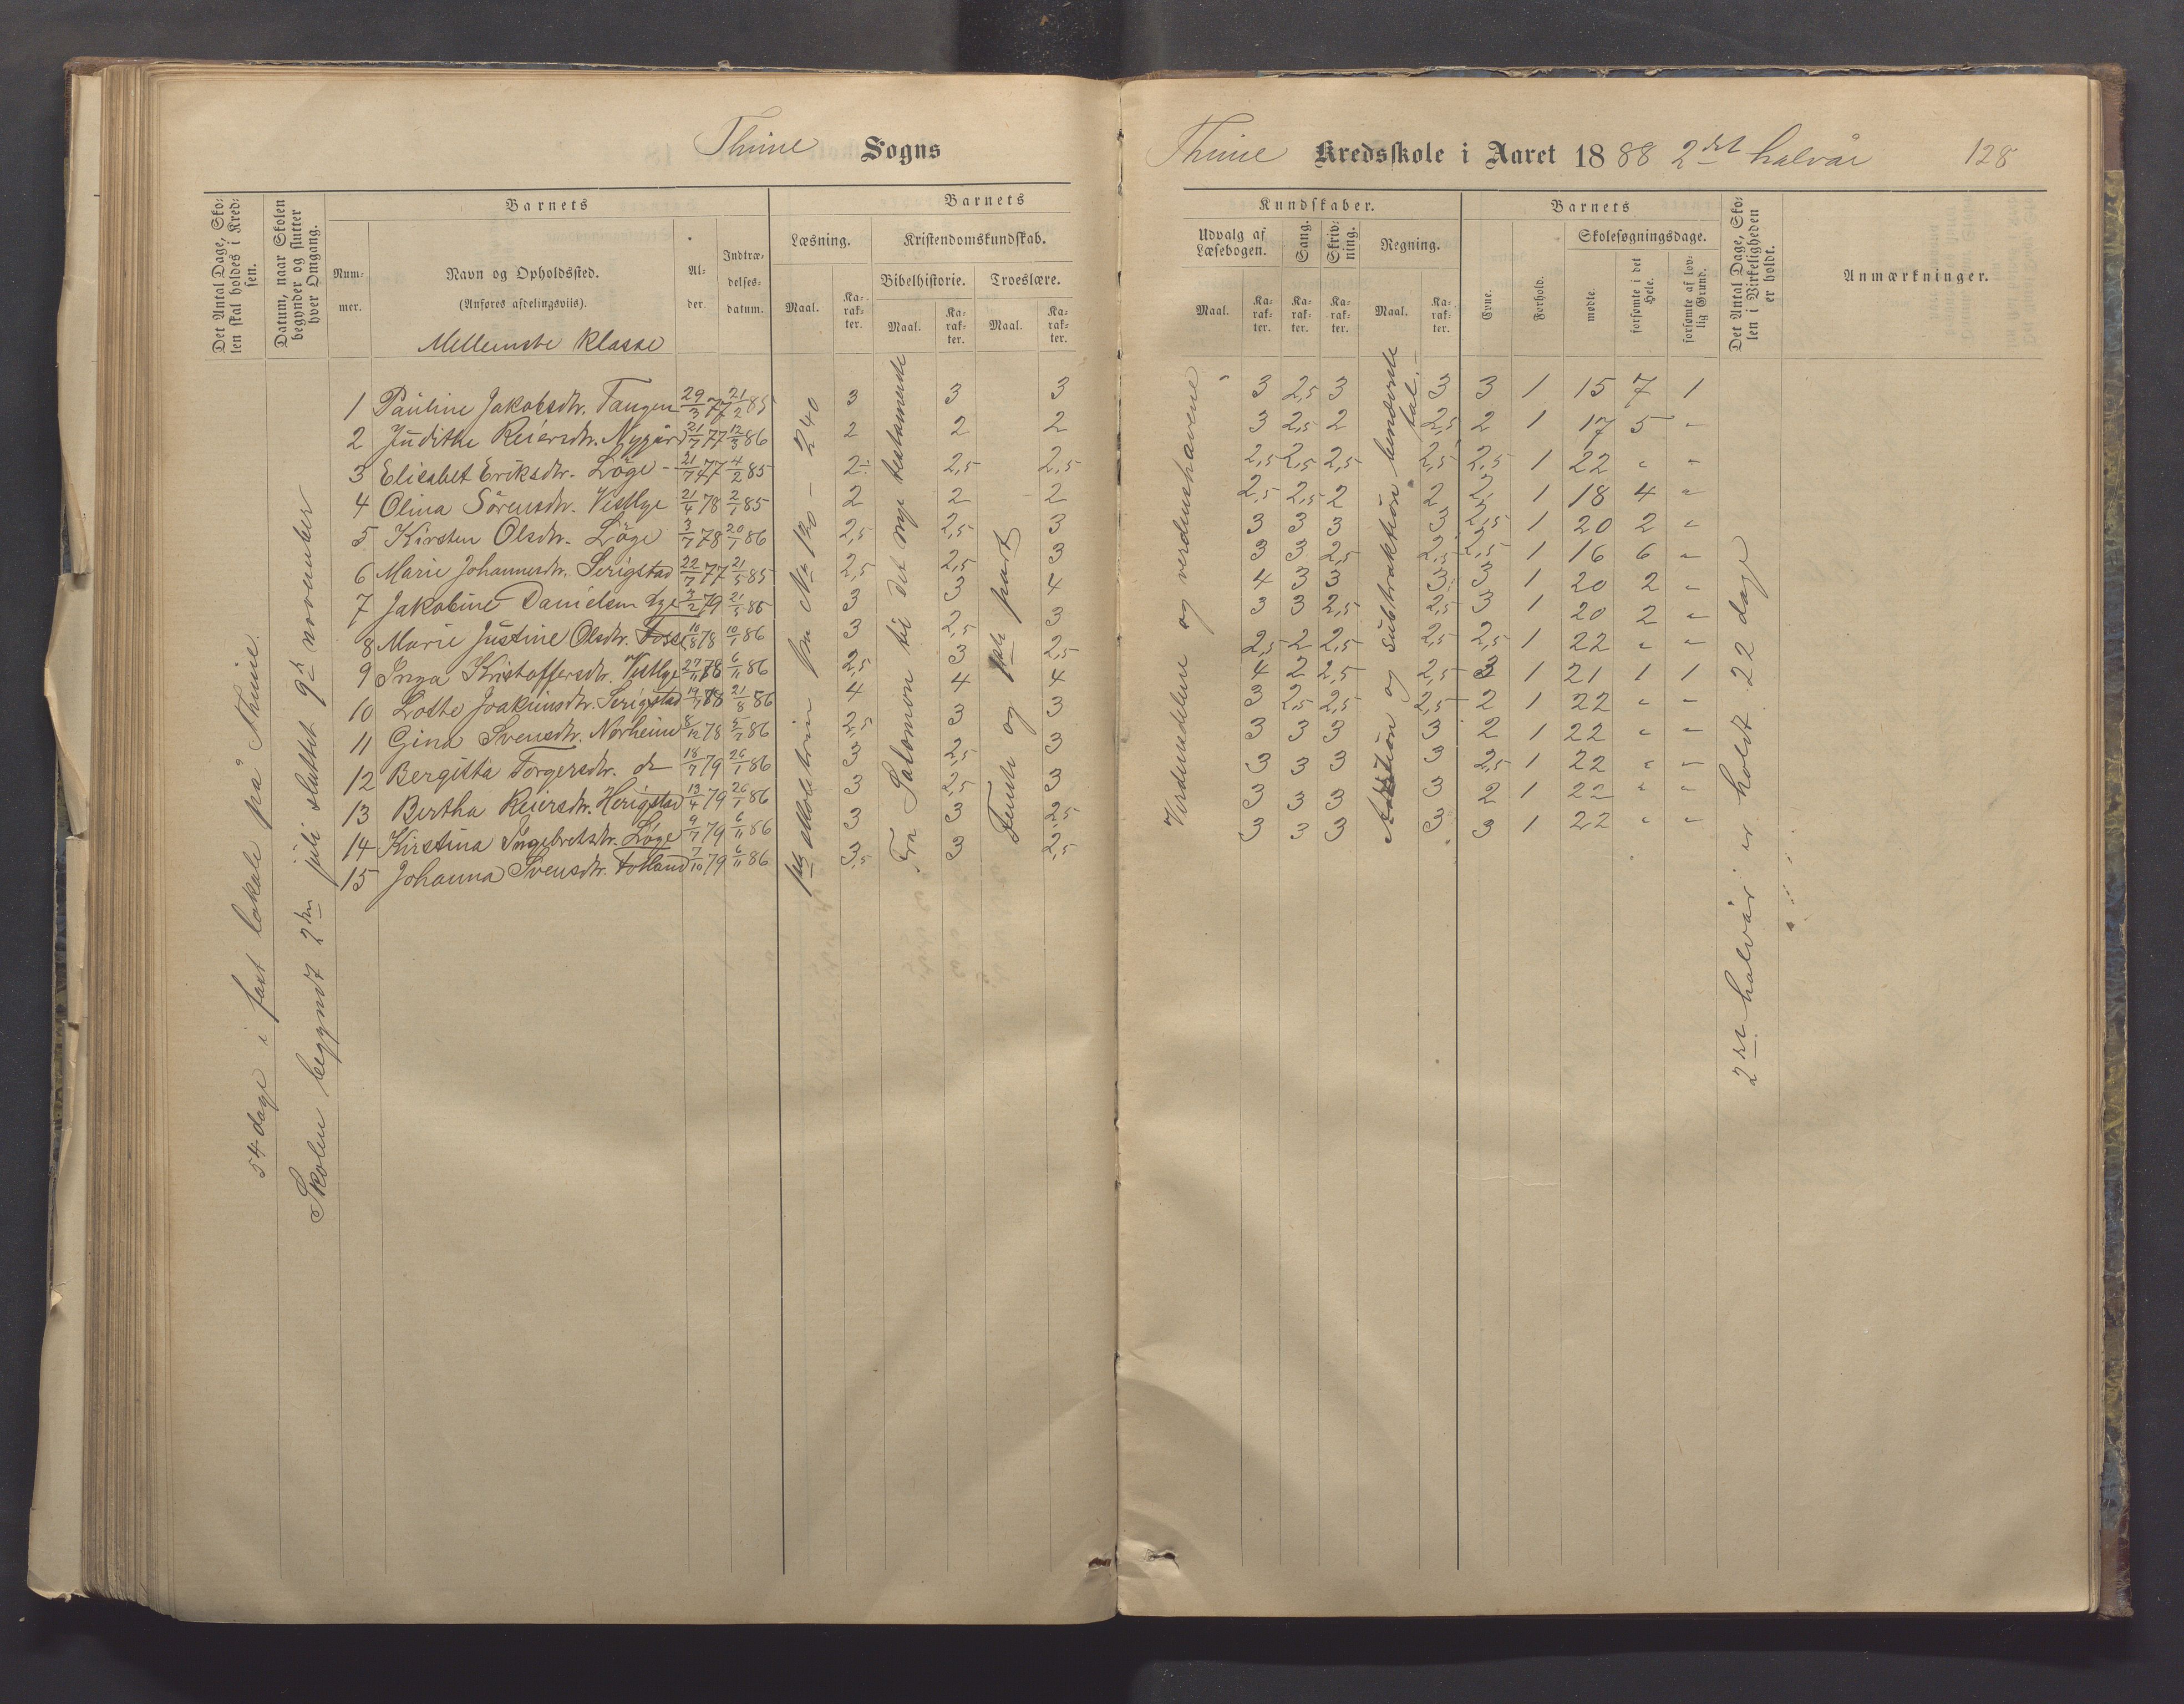 Thime Sogns
Thime Kredsskole i Aaret 1888 2det halvår 128
Det Antal Dage, Skolen skal holdes i Kredsen.
Datum, naar Skolen begynder og slutter hver Omgang.
Barnets
Nummer.
Navn og Opholdssted.
(Anføres afdelingsviis).
Alder.
Indtrædelsesdatum.
Barnets
Læsning.
Kristendomskundskab.
Bibelhistorie.
Troeslære.
Maal.
Karakter.
Maal.
Karakter.
Maal.
Karakter.
Kundskaber.
Udvalg af Læsebogen.
Sang.
Skrivning.
Regning.
Maal.
Karakter.
Karakter.
Karakter.
Maal.
Karakter.
Barnets
Evne.
Forhold.
Skolesøgningsdage.
mødte.
forsømte i det Hele.
forsømte af lovlig Grund.
Det Antal Dage, Skolen i Virkeligheden er holdt.
Anmærkninger.
Mellemste klasse
54 dage i fast lokale på Thime.
Skolen begyndt 2den juli sluttet 9de november
1 Pauline Jakobsdtr. Tangen 29/3 77 21/2 85 3 3 3 3 2,5 3 3 3 1 15 7 1
2 Judithe Reiersdtr. Nygård 21/7 77 12/3 86 2 2 2 3 2,5 2 2,5 2 1 17 5 "
3 Elisabet Eriksdtr. Löge 21/7 77 4/2 85 2 2,5 2,5 2,5 2,5 2,5 2,5 2,5 1 22 " "
4 Olina Sörensdtr. Vestlye 21/4 78 2/1 85 2 2 2 2,5 2,5 2 2 2 1 18 4 "
5 Kirsten Olsdtr. Löge 3/7 78 20/1 86 2,5 2,5 3 3 3 3 3 2,5 1 20 2 "
6 Marie Johannesdtr. Serigstad 22/7 77 21/5 85 2,5 2,5 3 3 3 2,5 2,5 2,5 1 16 6 "
7 Jakobine Danielsen Lye 3/2 79 21/5 86 3 3 4 4 3 3 3 3 1 20 2 "
8 Marie Justine Olsdtr. Fosse 10/8 78 10/1 86 3 2,5 3 3 3 2,5 2,5 3 1 20 2 "
9 Inga Kristoffersdtr. Vestlye 27/11 78 6/11 86 2,5 3 2,5 2,5 2 2,5 2,5 2,5 1 22 " "
10 Lotte Joakimsdtr. Serigstad 19/7 78 21/8 86 4 4 4 4 2 2,5 2,5 3 1 21 1 1
11 Gina Svensdtr. Norheim 8/12 78 5/7 86 2,5 3 3 3 2,5 2,5 2,5 2 1 22 " "
12 Bergitta Torgersdtr. do 18/7 79 26/1 86 3 2,5 3 3 3 3 3 2 1 22 " "
13 Bertha Reiersdtr. Herigstad 13/4 79 26/1 86 3 2,5 3 3 3 3 3 2,5 1 22 " "
14 Kirstina Ingebretsdtr. Löge 9/7 79 6/11 86 3 3 2,5 3 3 3 3 2 1 22 " "
15 Johanna Svensdtr. Fotland 7/10 79 6/11 86 3,5 3 2,5 3 3 3 3 3 1 22 " "
fra No 120 – 240
Fra Salomon til det nye testamente
Femte og part
Verdensdelene og verdenshavene
Addition og subtraktion benævnte tal.
2det halvår er holdt 22 dage